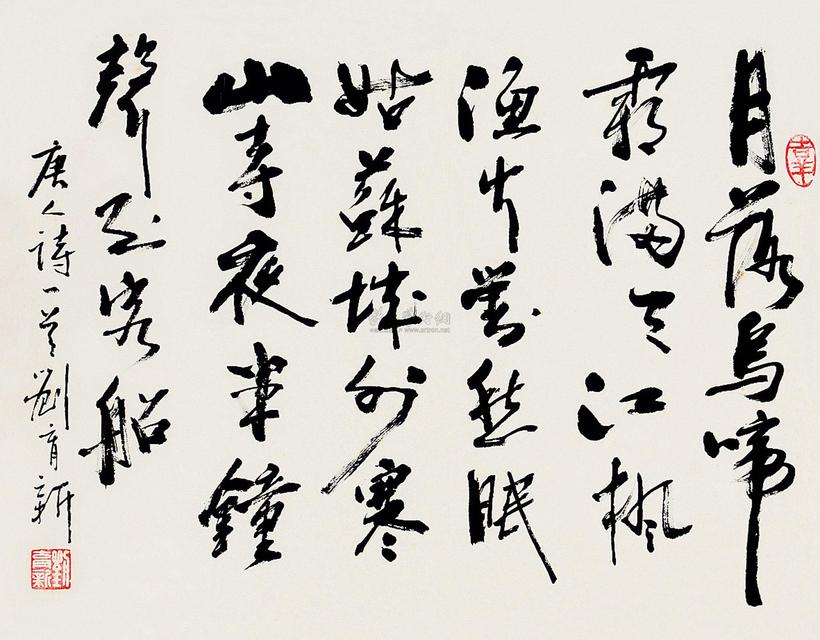 月落烏啼
霜滿天江楓
漁火對愁眠
姑蘇城外寒
山寺夜半鐘
聲到客船
唐人詩一首劉育新
劉育新
吉羊
www.artron.net